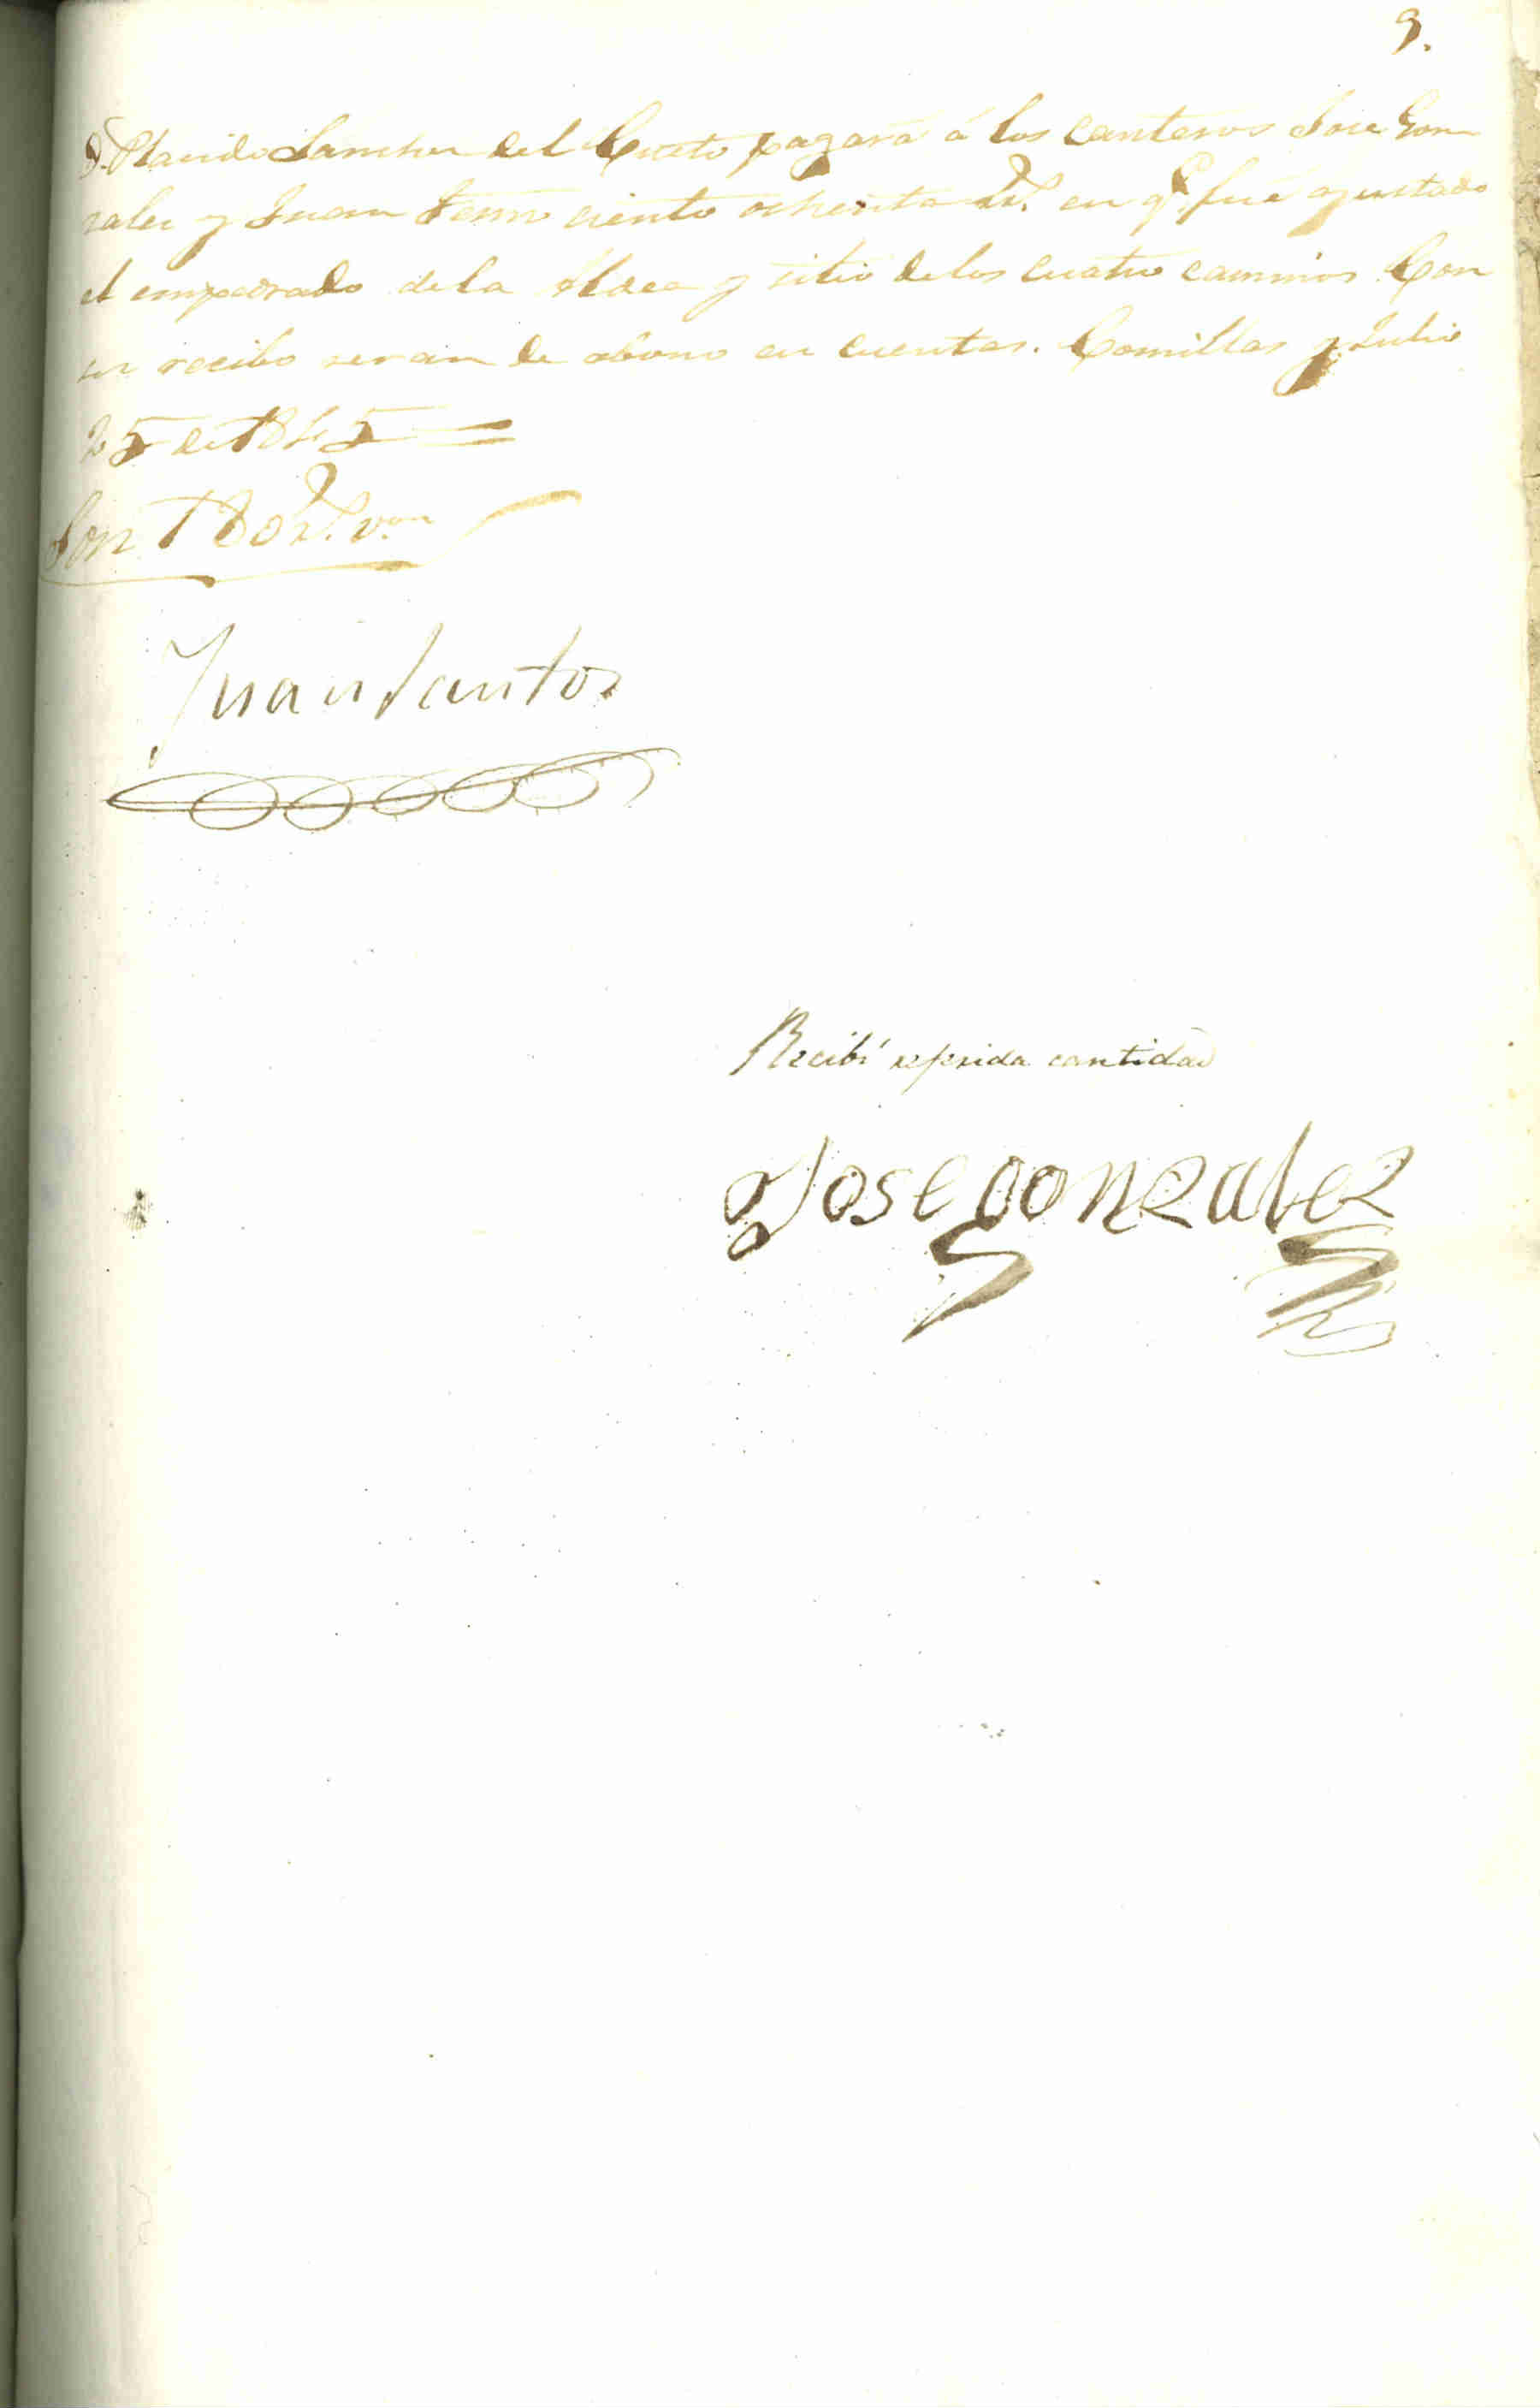 9.
D. Placido Sanchez del Cueto pagará á los canteros Jose Gon
zalez y Juan ciento ochenta r.s en q.e fué ajustado
el empedrado de la y sitio de los cuatro caminos. Con
su recibo serán de abono en cuentas. Comillas y Julio
25 de 1845 =
Son 180 r.s v.on
Juan Santos
Recibí referida cantidad
Jose gonzalez